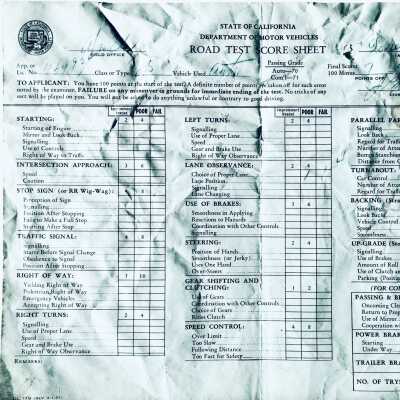 STATE OF CALIFORNIA
DEPARTMENT OF MOTOR VEHICLES
ROAD TEST SCORE SHEET
FIELD OFFICE
Passing Grade
Auto—70
Com'l—71
Final Score
100 Minus
POINTS OFF
App. or
Lic. No.
Class or Type
Vehicle Used
TO APPLICANT: You have 100 points at the start of the test. A definite number of points are taken off for each error
noted by the examiner. FAILURE on any maneuver is grounds for immediate ending of the test. No tricks of any
sort will be played on you. You will not be asked to do anything unlawful or contrary to good driving.
POOR FAIL
STARTING: 2 4
Starting of Engine
Mirror and Look Back
Signalling
Use of Controls
Right of Way in Traffic
INTERSECTION APPROACH:
Speed
Caution
STOP SIGN (or RR Wig-Wag):
Perception of Sign
Signalling
Position After Stopping
Failure to Make a Full Stop
Starting After Stop
TRAFFIC SIGNAL:
Signalling
Starts Before Signal Change
Obedience to Signal
Position After Stopping
RIGHT OF WAY: 10
Yielding Right of Way
Pedestrian Right of Way
Emergency Vehicles
Accepting Right of Way
RIGHT TURNS: 2 4
Signalling
Use of Proper Lane
Speed
Gear and Brake Use
Right of Way Observance
REMARKS:
Improvement Needed POOR FAIL
LEFT TURNS: 2 4
Signalling
Use of Proper Lane
Speed
Gear and Brake Use
Right of Way Observance
LANE OBSERVANCE: 2 4
Choice of Proper Lane
Lane Position
Signalling
Lane Changing
USE OF BRAKES: 4
Smoothness in Applying
Reactions to Hazards
Coordination with Other Controls
Signalling
STEERING: 2 4
Position of Hands
Smoothness (or Jerky)
Uses One Hand
Over-Steers
GEAR SHIFTING AND
CLUTCHING: 1 2
Use of Gears
Coordination with Other Controls
Choice of Gears
Rides Clutch
SPEED CONTROL: 4 8
Over Limit
Too Slow
Following Distance
Too Fast for Safety
PARALLEL PAR
Signalling
Look Back
Regard for Traffic
Number of Attem
Bumps Stanchion
Distance from C
TURNABOUT:
Car Control
Number of Attem
Regard for Traffic
BACKING (Stra
Signalling
Look Back
Vehicle Control
Speed
Smoothness
UP-GRADE (St
Use of Brakes
Amount of Roll
Use of Clutch a
Parking (Positio
(FOR CO
PASSING & B
Oncoming Cle
Return to Prop
Use of Mirror
Cooperation wi
POWER BRAK
Starting
Under Way
TRAILER BRA
NO. OF TRYS